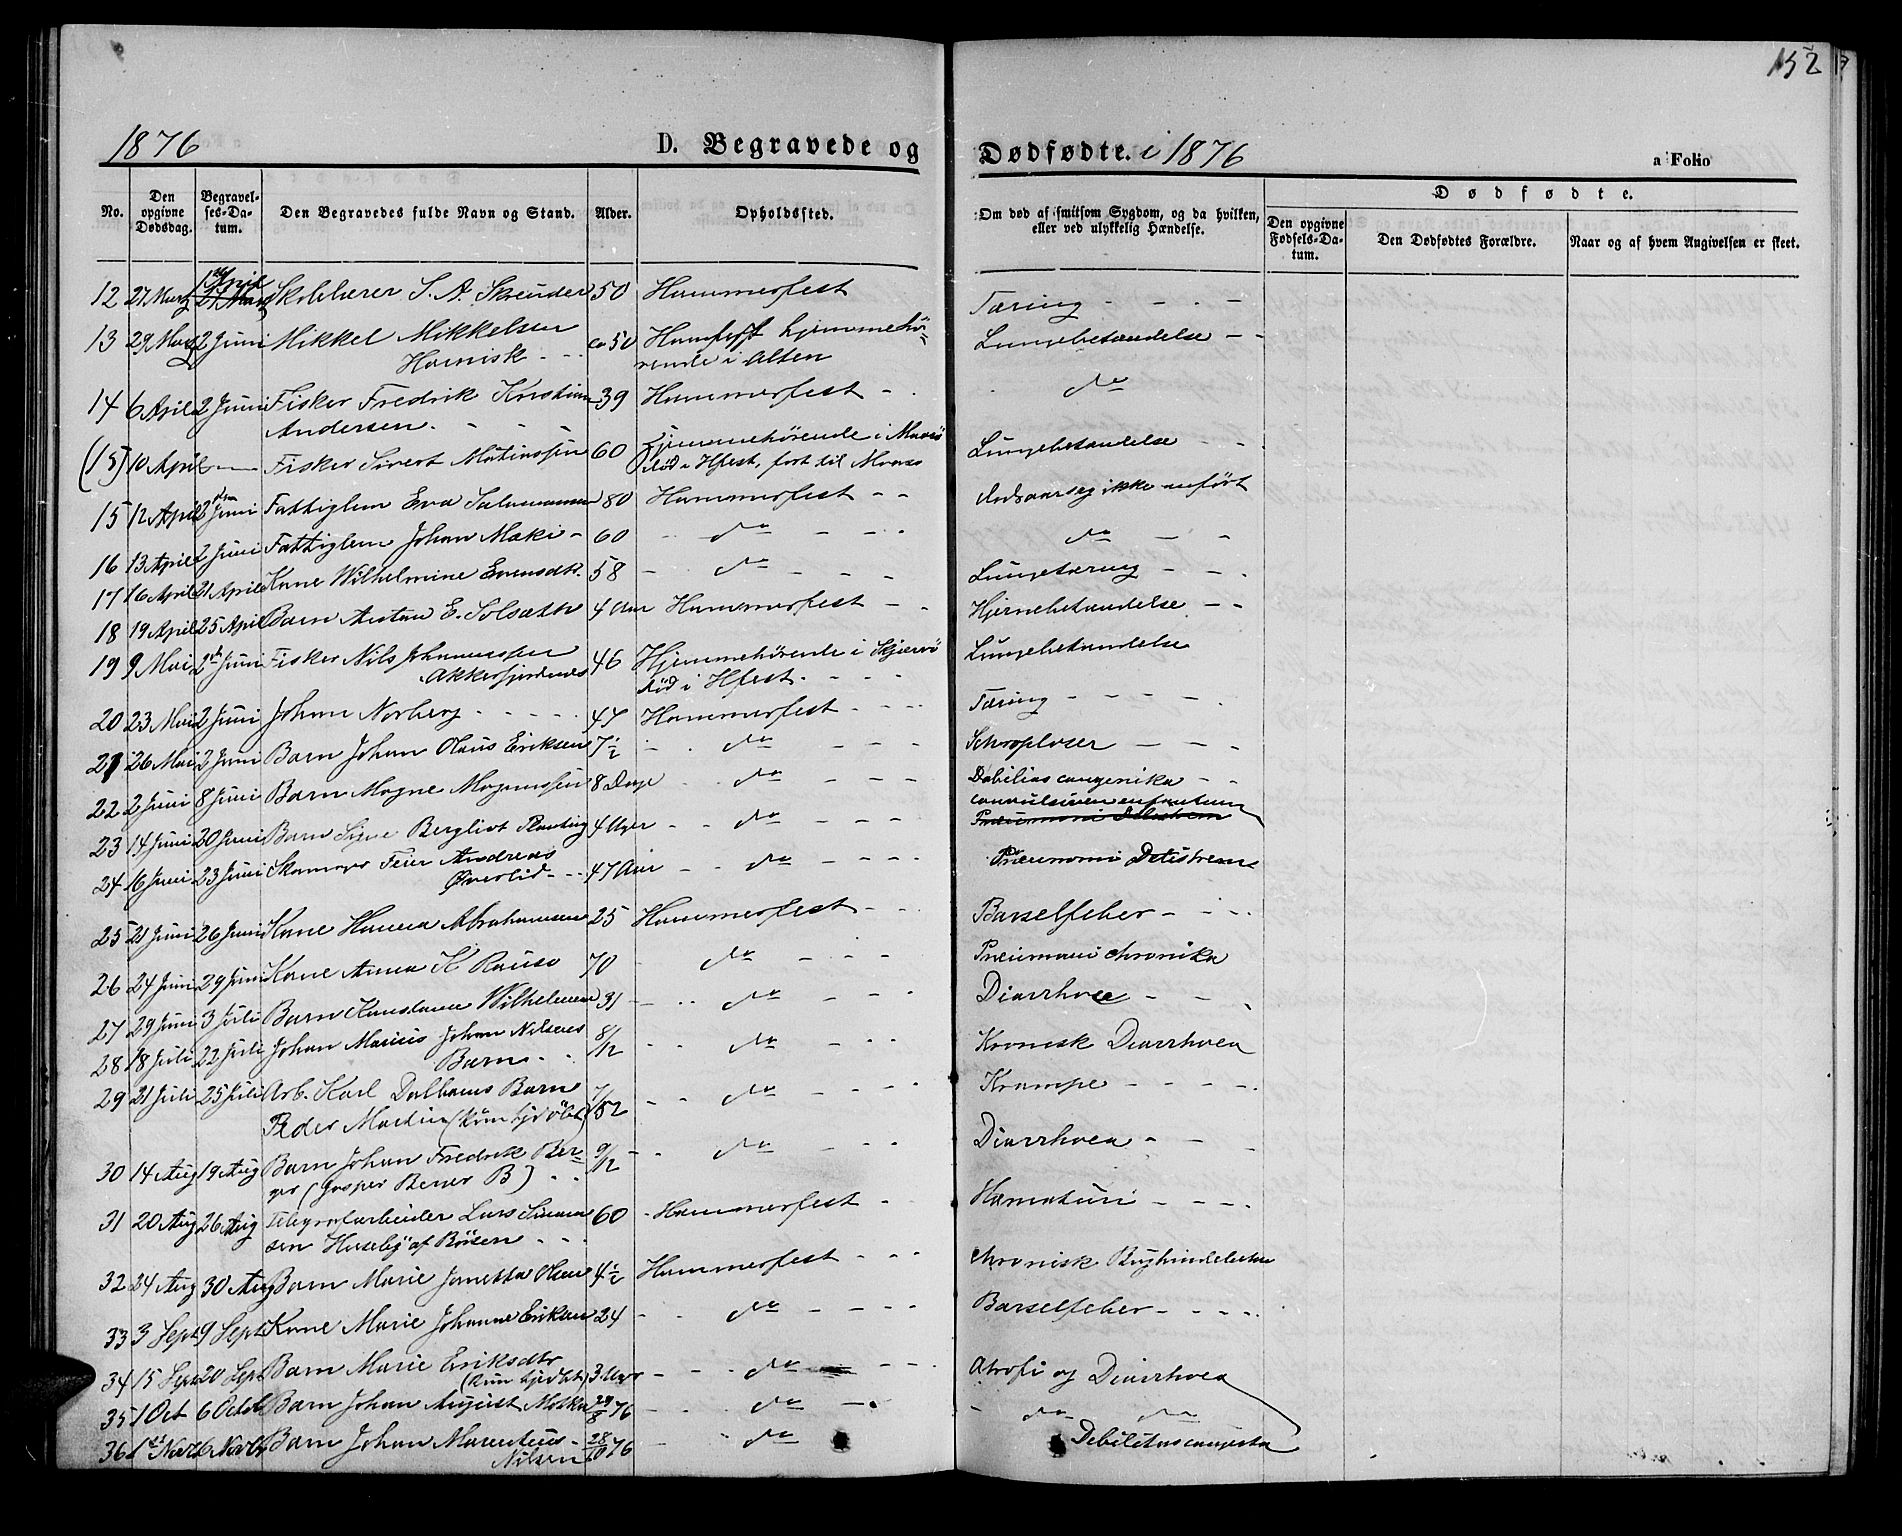 152
1876 D. Begravede og Dødfødte. i 1876 a Folio
No. Den opgivne Dødsdag. Begravelses-Datum. Den Begravedes fulde Navn og Stand. Alder. Opholdssted. Om død af smitsom Sygdom, og da hvilken, eller ved ulykkelig Hændelse. Dødfødte.
Den opgivne Fødsels-Datum. Den Dødfødtes Forældre. Naar og af hvem Angivelsen er skeet.
12 27 Marts 1 April Skolelærer S. A. 50 Hammerfest Tæring
13 29 Marts 2 Juni Mikkel Mikkelsen ca 50 Hamfest hjemmehø- Lungebetændelse
rende i Alten
14 6 April 2 Juni Fisker Fredrik Kristian 39 Hammerfest do
Andersen.
(15) 10 April — Fisker Sivert Matiassen 60 Hjemmehørende i Maasø Lungebetændelse
død i Hfest, ført til Maasø
15 12 April 2 Juni Fattiglem Eva Salamonsen 80 Hammerfest Dødsaarsag ikke anført
16 13 April 2 Juni Fattiglem Johan Maki 60 do do
17 16 April 21 April Kone Wilhelmine Evensdtr. 58 do Lungetæring
18 19 April 25 April Barn E. 4 Aar Hammerfest Hjernebetændelse
19 9 Mai 2 Juni Fisker Nils Johannessen 46 Hjemmehørende i Skjervø Lungebetændelse
Akkerfjordnes død i Hfest.
20 23 Mai 2 Juni Johan Norberg 47 Hammerfest Tæring
21 26 Mai 2 Juni Barn Johan Olaus Eriksen 7½ do
22 2 Juni 8 Juni Barn Mogne Magnussen 8 Dage do Debilias congenika
23 14 Juni 20 Juni Barn Signe Bergliot 4 Uger do
24 16 Juni 23 Juni Feier Andreas 47 Aar do Pneumoni
Øverlid
25 21 Juni 26 Juni Kone Hanna Abrahamsen 25 Hammerfest Barselfeber
26 24 Juni 29 Juni Kone Anna K 70 do Pneumoni chronika
27 29 Juni 3 Juli Barn Wilhelmsen 31 do Diarrhoea
28 18 Juli 22 Juli Johan Marius Johan Nilsens 8/12 do Kronisk Diarrhoea
Barn
29 21 Juli 25 Juli Arb. Karl Barn 7/52 do Krampe
Peder Martin (kun hjdøbt)
30 14 Aug 19 Aug Barn Johan Fredrik Ber- 9/12 do Diarrhoea
ger (Jesper B)
31 20 Aug 26 Aug Telegrafarbeider Lars Simon- 60 Hammerfest Hamaturi
sen Huseby af Børsen
32 24 Aug 30 Aug Barn Marie Janetta Olsen 4½ Hammerfest Chronisk
33 3 Sept 9 Sept Kone Marie Johanne Eriksen 24 do Barselfeber
34 15 Sept 20 Sept Barn Marie Eriksdtr 3 do Atrofi og Diarrhoea
(kun hjdøbt)
35 1 Oct 6 Octb Barn Johan August 29/8 76 do do do
36 1st Novb 6 Novb Barn Johan Marentius 28/10 76 do Debilitas
Nilsen